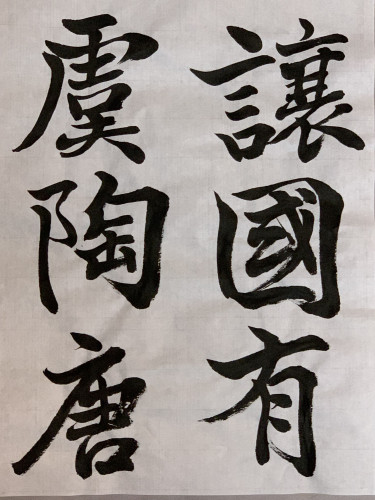 讓國有
虞陶唐